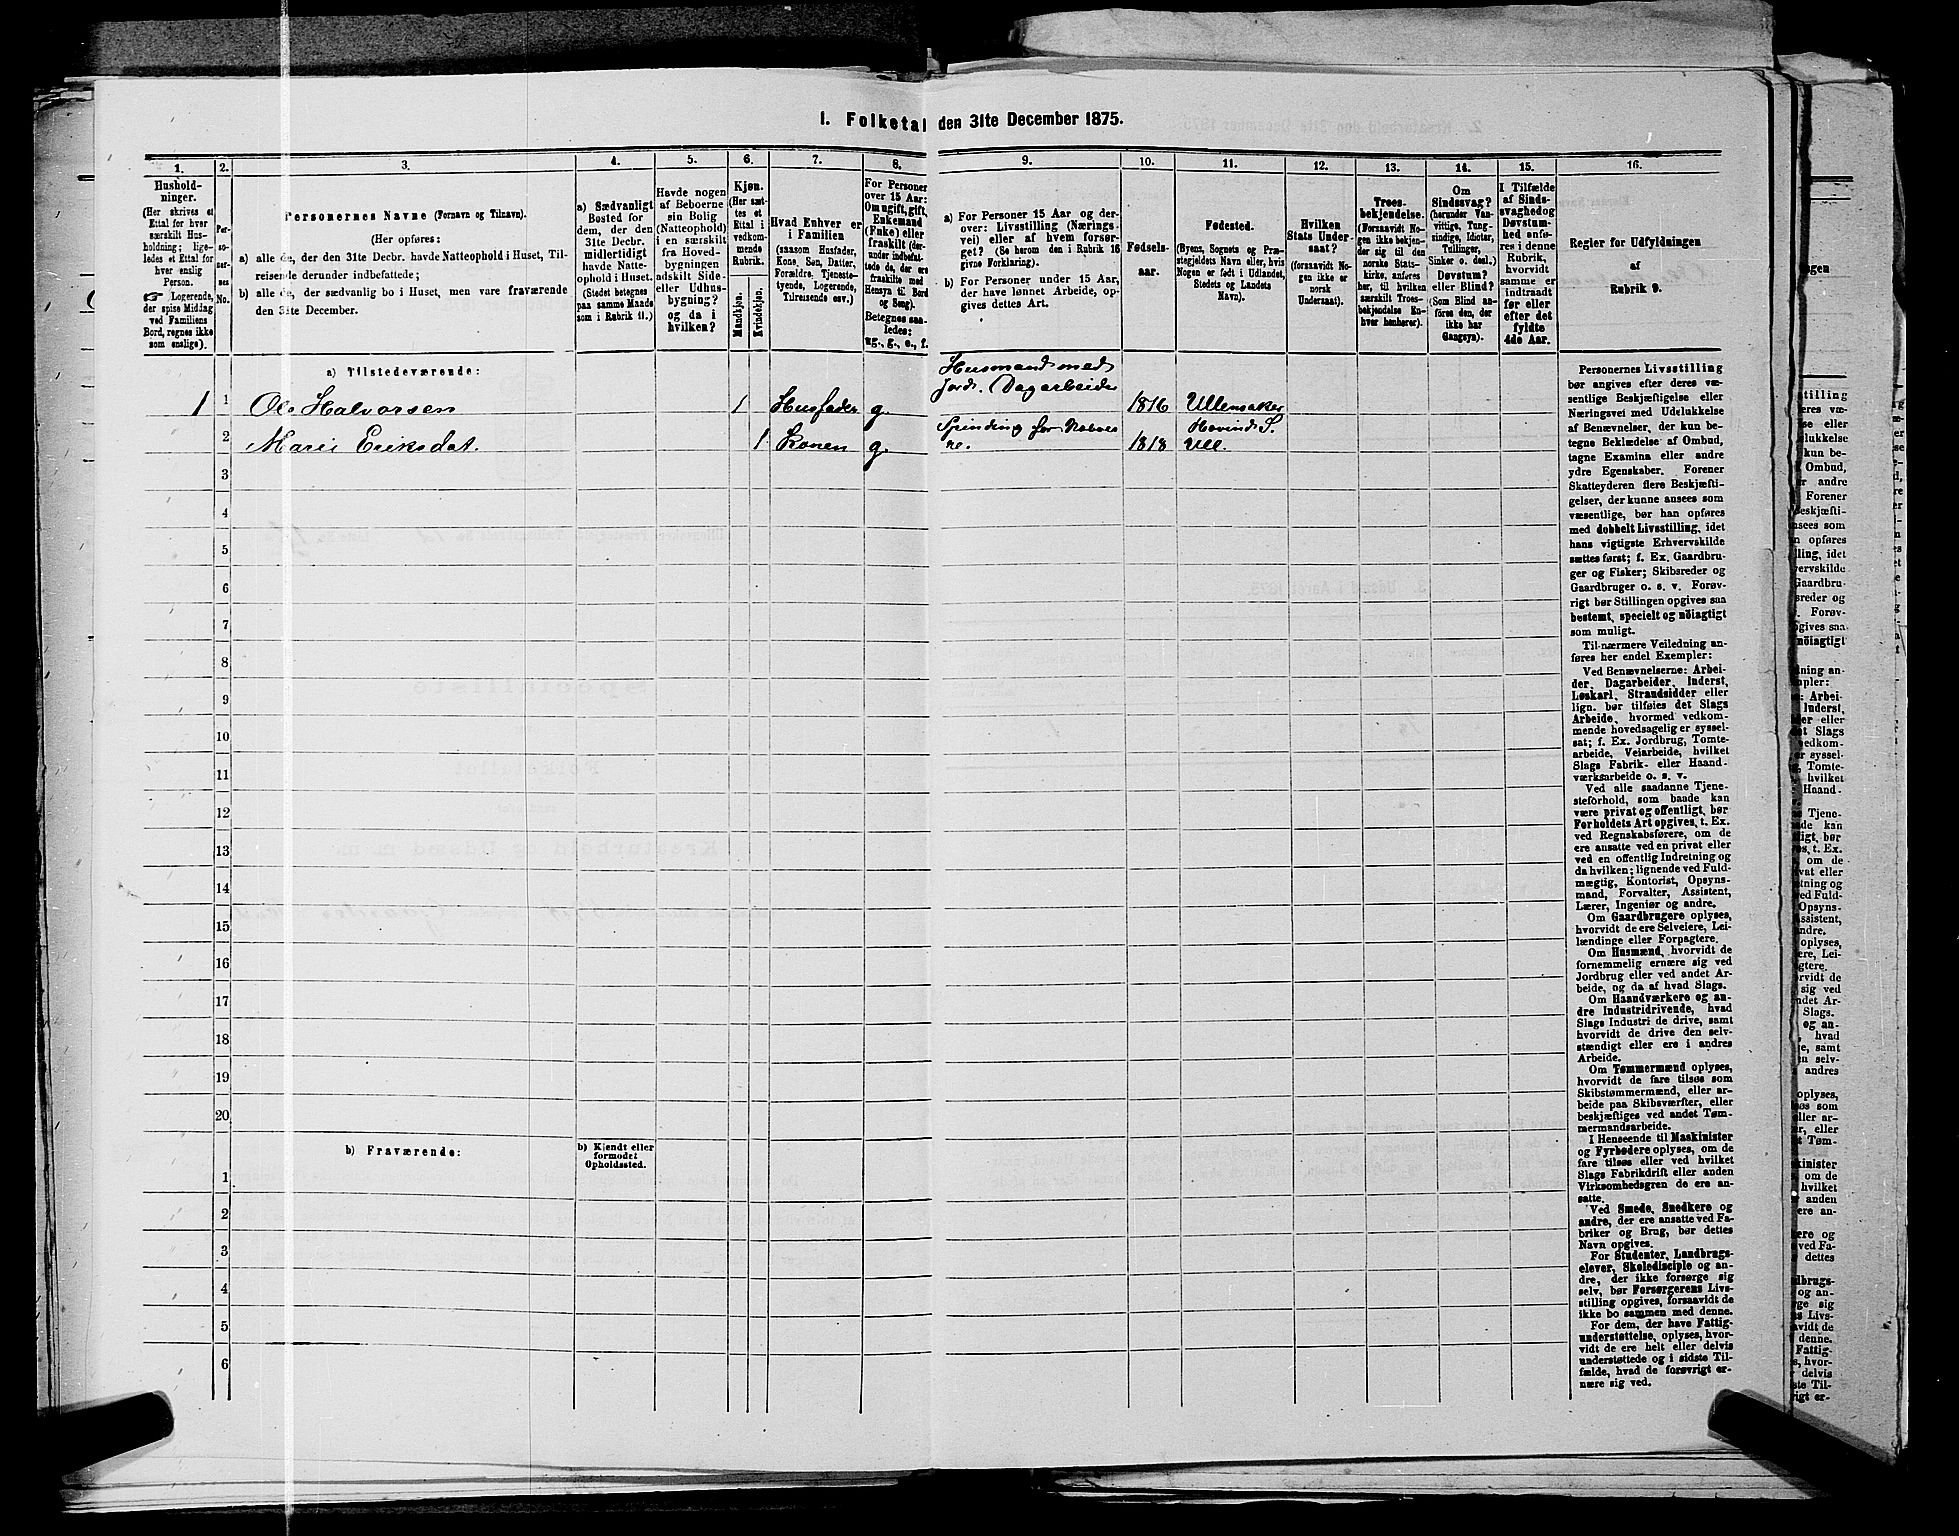 I. Folketal den 31te December 1875.
1. 2. 3. 4. 5. 6. 7. 8. 9. 10. 11. 12. 13. 14. 15. 16.
Hushold-
ninger.
(Her skrives et
Ettal for hver
særskilt Hus-
holdning; lige-
ledes et Ettal for
hver enslig
Person.
☞ Logerende,
der spise Middag
ved Familiens
Bord, regnes ikke
som enslige).
Per-
so-
ner-
nes
No.
Personernes Navne (Fornavn og Tilnavn).
(Her opføres:
a) alle de, der den 31te Decbr. havde Natteophold i Huset, Til-
reisende derunder indbefattede;
b) alle de, der sædvanlig bo i Huset, men vare fraværende
den 31te December.
a) Sædvanligt
Bosted for
dem, der den
31te Decbr.
midlertidigt
havde Natte-
ophold i Huset.
(Stedet betegnes
paa samme Maade
som i Rubrik 11.)
Havde nogen
af Beboerne
sin Bolig
(Natteophold)
i en særskilt
fra Hoved-
bygningen
adskilt Side-
eller Udhus-
bygning?
og da i
hvilken?
Kjøn.
(Her sæt-
tes et
Ettal i
vedkom-
mende
Rubrik.
Mandkjøn.
Kvindekjøn.
Hvad Enhver er
i Familien
(saasom Husfader,
Kone, Søn, Datter,
Forældre, Tjeneste-
tyende, Logerende,
Tilreisende osv.)
For Personer
over 15 Aar:
Om ugift, gift,
Enkemand
(Enke) eller
fraskilt (der-
under indbefat-
tede de, der ere
fraskilte med
Hensyn til Bord
og Seng).
Betegnes saa-
ledes:
ug., g., e., f.
a) For Personer 15 Aar og der-
over: Livsstilling (Nærings-
vei) eller af hvem forsør-
get? (Se herom den i Rubrik 16
givne Forklaring).
b) For Personer under 15 Aar,
der have lønnet Arbeide, op-
gives dettes Art.
Fødsels-
aar.
Fødested.
(Byens, Sognets og Præ-
stegjeldets Navn eller, hvis
Nogen er født i Udlandet,
Stedets og Landets
Navn).
Hvilken
Stats Under-
saat?
(forsaavidt No-
gen ikke er
norsk
Undersaat).
Troes-
bekjendelse.
(Forsaavidt No-
gen ikke bekjen-
der sig til den
norske Stats-
kirke, anføres
her, til hvilken
særskilt Troes-
bekjendelse En-
hver henhører).
Om
Sindssvag?
(herunder Van-
vittige, Tung-
sindige, Idioter,
Tullinger,
Sinker o. desl.)
Døvstum?
eller Blind?
(Som Blind an-
føres den, der
ikke har
Gangsyn).
I Tilfælde
af Sinds-
svaghed og
Døvstum-
hed anfø-
res i denne
Rubrik,
hvorvidt
samme er
indtraadt
før eller
efter det
fyldte
4de Aar.
Regler for Udfyldningen
af
Rubrik 9.
a) Tilstedeværende:
Husmand med
Jord. Dagarbeider
1 1 Ole Halvorsen 1 Husfader g. 1816 Ullensaker
Spinding for
Hovind S.
2 Marie Eriksdat. 1 Konen g. 1818 Ull.
3
4
5
6
7
8
9
10
11
12
13
14
15
16
17
18
19
20
b) Fraværende:
b) Kjendt eller
formodet
Opholdssted.
1
2
3
4
5
6
Personernes Livsstilling
bør angives efter deres væ-
sentlige Beskjæftigelse eller
Næringsvei med Udelukkelse
af Benævnelser, der kun be-
tegne Beklædelse af Ombud,
tagne Examina eller andre
ydre Egenskaber. Forener
Skatteyderen flere Beskjæfti-
gelser, der kunne ansees som
væsentlige, bør han opføres
med dobbelt Livsstilling, idet
hans vigtigste Erhvervskilde
sættes først; f. Ex. Gaardbru-
ger og Fisker; Skibsreder og
Gaardbruger o. s. v. Forøv-
rigt bør Stillingen opgives saa
bestemt, specielt og nöiagtigt
som muligt.
Til nærmere Veiledning an-
føres her endel Exempler:
Ved Benævnelserne: Arbei-
der, Dagarbeider, Inderst,
Løskarl, Strandsidder eller
lign. bør tilføies det Slags
Arbeide, hvormed vedkom-
mende hovedsagelig er syssel-
sat; f. Ex. Jordbrug, Tomte-
arbeide, Veiarbeide, hvilket
Slags Fabrik- eller Haand-
værksarbeide o. s. v.
Ved alle saadanne Tjene-
steforhold, som baade kan
være privat og offentligt, bør
Forholdets Art opgives, t. Ex.
ved Regnskabsførere, om de
ere ansatte ved en privat eller
ved en offentlig Indretning og
da hvilken; lignende ved Fuld-
mægtig, Kontorist, Opsyns-
mand, Forvalter, Assistent,
Lærer, Ingeniør og andre.
Om Gaardbrugere oplyses,
hvorvidt de ere Selveiere, Lei-
lændinge eller Forpagtere.
Om Husmænd, hvorvidt de
fornemmelig ernære sig ved
Jordbrug eller ved andet Ar-
beide, og da af hvad Slags.
Om Haandværkere og an-
dre Industridrivende, hvad
Slags Industri de drive, samt
hvorvidt de drive den selv-
stændigt eller ere i andres
Arbeide.
Om Tømmermænd oplyses,
hvorvidt de fare tilsøs som
Skibstømmermænd, eller ar-
beide paa Skibsværfter, eller
beskjæftiges ved andet Tøm-
mermandsarbeide.
I Henseende til Maskinister
og Fyrbødere oplyses, om de
fare tilsøs eller ved hvilket
Slags Fabrikdrift eller anden
Virksomhedsgren de ere an-
satte.
Ved Smede, Snedkere og
andre, der ere ansatte ved Fa-
briker og Brug, bør dettes
Navn opgives.
For Studenter, Landbrugs-
elever, Skoledisciple og an-
dre, der ikke forsørge sig
selv, bør Forsørgerens Livs-
stilling opgives, forsaavidt de
ikke bo sammen med denne.
For dem, der have Fattig-
understøttelse, oplyses, hvor-
vidt de ere helt eller delvis
understøttede og i sidste Til-
fælde, hvad de forøvrigt er-
nære sig ved.